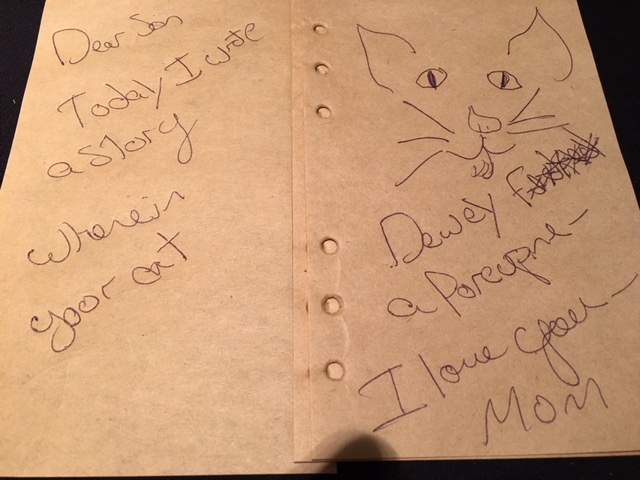 Dear Son
Today I wrote
a story
wherein
your cat
Dewey
a Porcupine—
I love you—
MOM